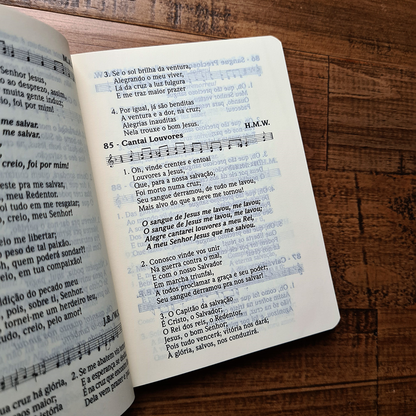 M.
Senhor Jesus,
ao desprezo, assim,
muita gente induz;
foi por mim!
me salvar.
me salvar.
creio, foi por mim!
este pra me salvar,
, meu Redentor.
has de clamar:
eio, meu Senhor!
eiro me libertar;
peso de tal paixão.
m, quem poderá sondar?!
eio, em tua compaixão!
aldição do pecado meu
im, pois, sobre ti, Senhor.
tornei-me um herdeiro teu,
tudo, creio, pelo amor!
J.B./W.
na cruz há glória,
história
2. Se me abatem t
E a esperança se
O engano
Dela vem pra
3. Se o sol brilha da ventura,
Alegrando o meu viver,
Lá da cruz a luz fulgura
E me traz maior prazer
4. Por igual, já são benditas
A ventura e a dor, na cruz;
Alegrias inauditas
Nela trouxe o bom Jesus.
85 - Cantai Louvores
H.M.W.
1. Oh, vinde crentes e entoai
Louvores a Jesus,
Que, para a nossa salvação,
Foi morto numa cruz;
Seu sangue derramou, de tudo me lavou,
Mais alvo do que a neve me tornou!
O sangue de Jesus me lavou, me lavou;
O sangue de Jesus me lavou, me lavou;
Alegre cantarei louvores a meu Rei,
A meu Senhor Jesus que me salvou.
2. Conosco vinde vos unir
Na guerra contra o mal,
E com o nosso Salvador
Em marcha triunfal,
A todos proclamar a graça e seu poder;
Seu sangue derramou pra nos salvar!
3. O Capitão da salvação
É Cristo, o Salvador;
O Rei dos reis, o Redentor,
Jesus, o bom Senhor;
Pois tudo vencerá; vitória nos dará;
À glória, salvos, nos conduzirá.